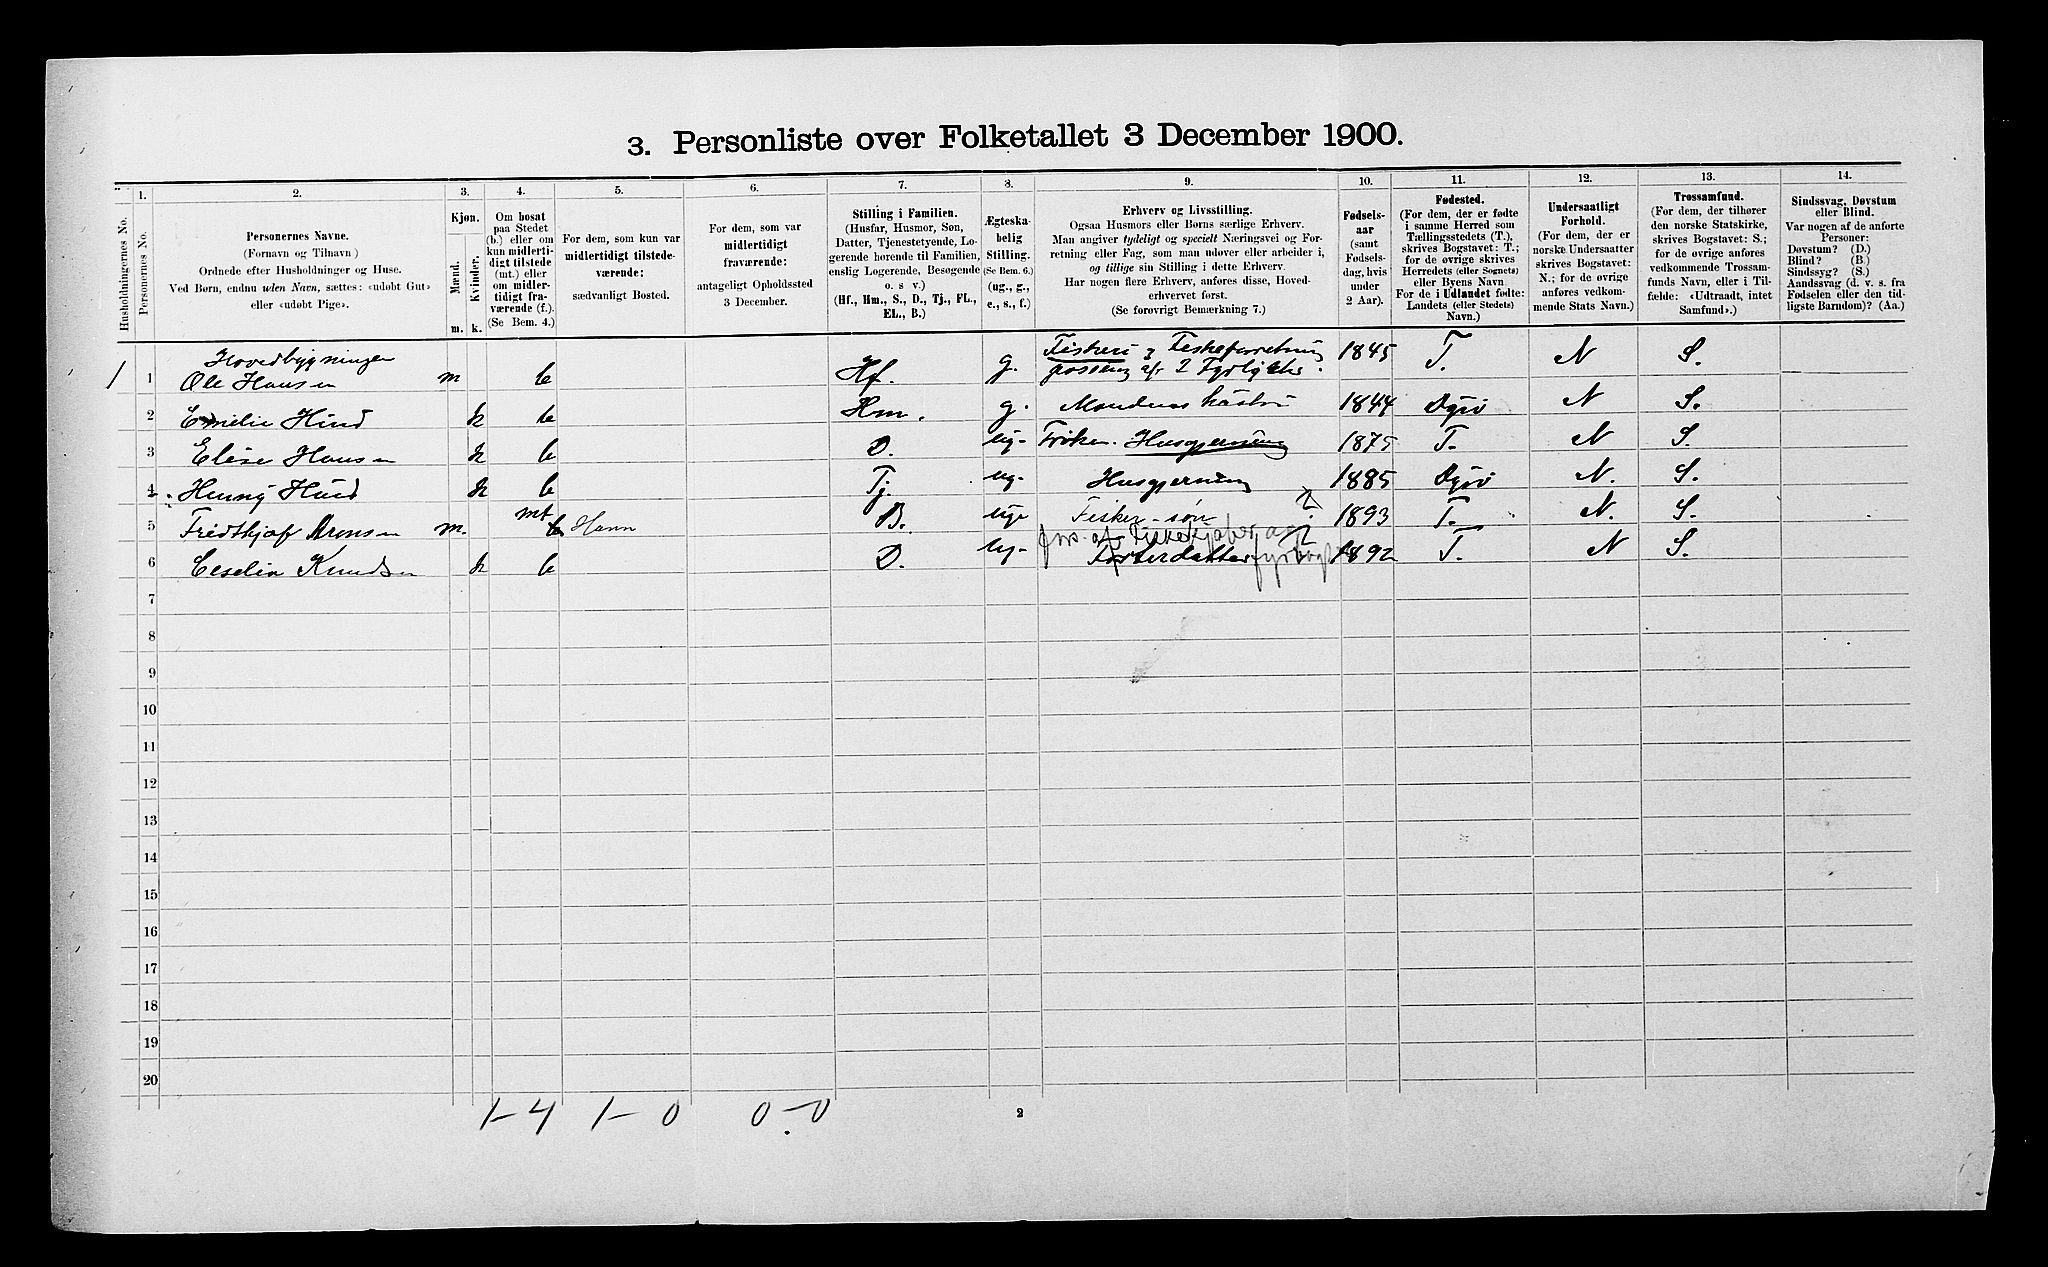 3. Personliste over Folketallet 3 December 1900.
Husholdningernes No.
1.
Personernes No.
2.
Personernes Navne.
(Fornavn og Tilnavn)
Ordnede efter Husholdninger og Huse.
Ved Børn, endnu uden Navn, sættes: «udøbt Gut»
eller «udøbt Pige».
3.
Kjøn.
Mænd.
Kvinder.
m. k.
4.
Om bosat
paa Stedet
(b.) eller om
kun midlerti-
digt tilstede
(mt.) eller
om midler-
tidigt fra-
værende (f.).
(Se Bem. 4.)
5.
For dem, som kun var
midlertidigt tilstede-
værende:
sædvanligt Bosted.
6.
For dem, som var
midlertidigt
fraværende:
antageligt Opholdssted
3 December.
7.
Stilling i Familien.
(Husfar, Husmor, Søn,
Datter, Tjenestetyende, Lo-
gerende hørende til Familien,
enslig Logerende, Besøgende
o. s v.)
(Hf., Hm., S., D., Tj., FL.,
EL., B.)
8.
Ægteska-
belig
Stilling.
(Se Bem. 6.)
(ug., g.,
e., s., f.)
9.
Erhverv og Livsstilling.
Ogsaa Husmors eller Børns særlige Erhverv.
Man angiver tydeligt og specielt Næringsvei og For-
retning eller Fag, som man udøver eller arbeider i,
og tillige sin Stilling i dette Erhverv.
Har nogen flere Erhverv, anføres disse, Hoved-
erhvervet først.
(Se forøvrigt Bemærkning 7.)
10.
Fødsels-
aar
(samt
Fødsels-
dag, hvis
under
2 Aar).
11.
Fødested.
(For dem, der er fødte
i samme Herred som
Tællingsstedets (T.),
skrives Bogstavet: T.;
for de øvrige skrives
Herredets (eller Sognets)
eller Byens Navn.
For de i Udlandet fødte:
Landets (eller Stedets)
Navn.)
12.
Undersaatligt
Forhold.
(For dem, der er
norske Undersaatter
skrives Bogstavet:
N.; for de øvrige
anføres vedkom-
mende Stats Navn.)
13.
Trossamfund.
(For dem, der tilhører
den norske Statskirke,
skrives Bogstavet: S.;
for de øvrige anføres
vedkommende Trossam-
funds Navn, eller i Til-
fælde: «Udtraadt, intet
Samfund».)
14.
Sindssvag, Døvstum
eller Blind.
Var nogen af de anførte
Personer:
Døvstum? (D.)
Blind? (B.)
Sindssyg? (S.)
Aandssvag (d. v. s. fra
Fødselen eller den tid-
ligste Barndom)? (Aa.)
Hovedbygningen Fiskeri & Fiskeforretning
1 1 Ole Hansen m b Hf. g. 2 1845 T. N S.
2 Emelie Hind k b Hm. g. 1844 Dyrø N S.
3 Elise Hansen k b D. ug. Frøken. Husgjerning 1875 T. N S.
4 Henny Hind k b Tj. ug. Husgjerning 1885 Dyrø N. S.
5 Fridthjof m. mt b Havn B. ug. Fisker - søn 1893 T. N. S.
6 Knudsen k b D. ug. 1892 T. N S.
7
8
9
10
11
12
13
14
15
16
17
18
19
20
1-4 1-0 0-0 2